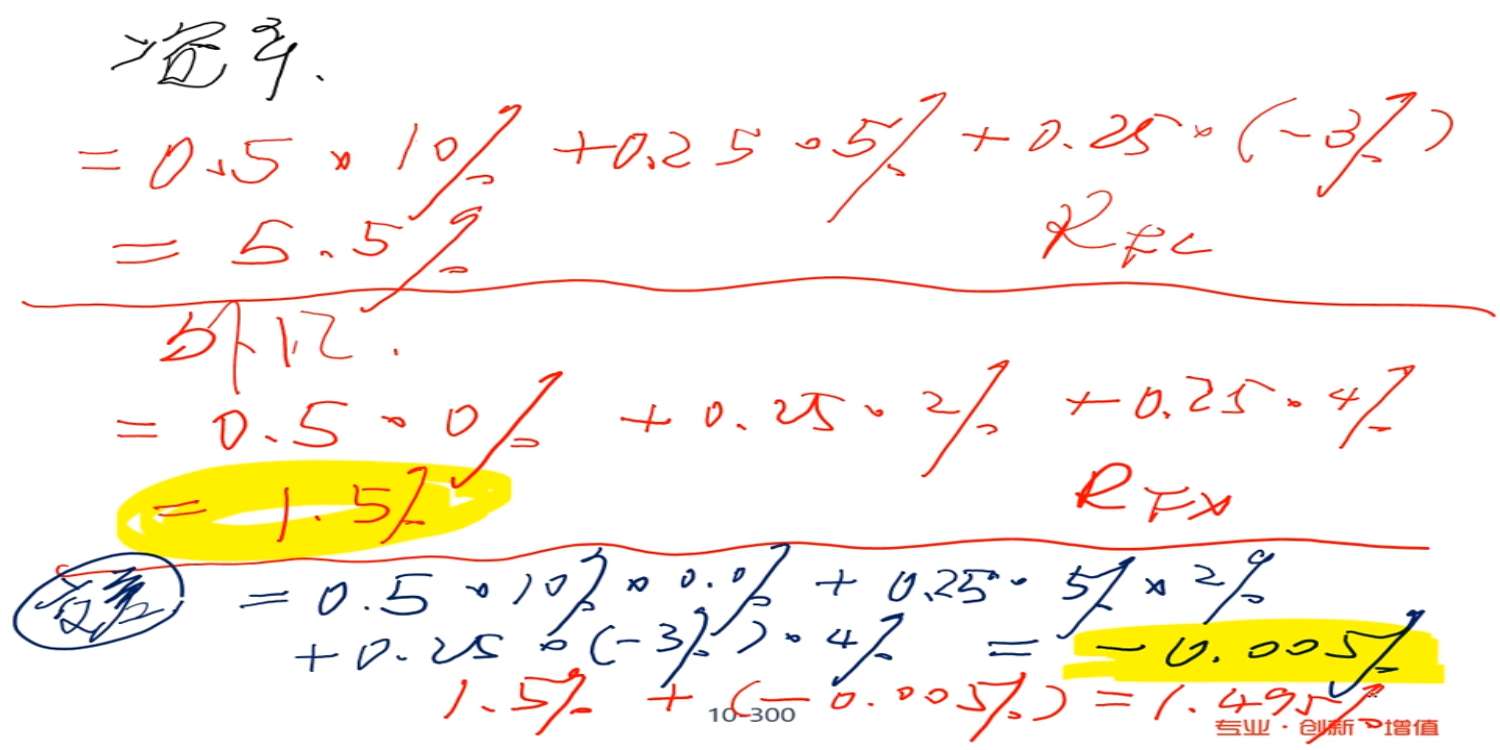 资产.
= 0.5 × 10% + 0.25 × 5% + 0.25 × (-3%)
= 5.5%
R_FC
外汇.
= 0.5 × 0% + 0.25 × 2% + 0.25 × 4%
= 1.5%
R_FX
= 0.5 × 10% × 0.0% + 0.25 × 5% × 2%
+ 0.25 × (-3%) × 4% = -0.005%
1.5% + (-0.005%) = 1.495%
10-300
专业·创新·增值